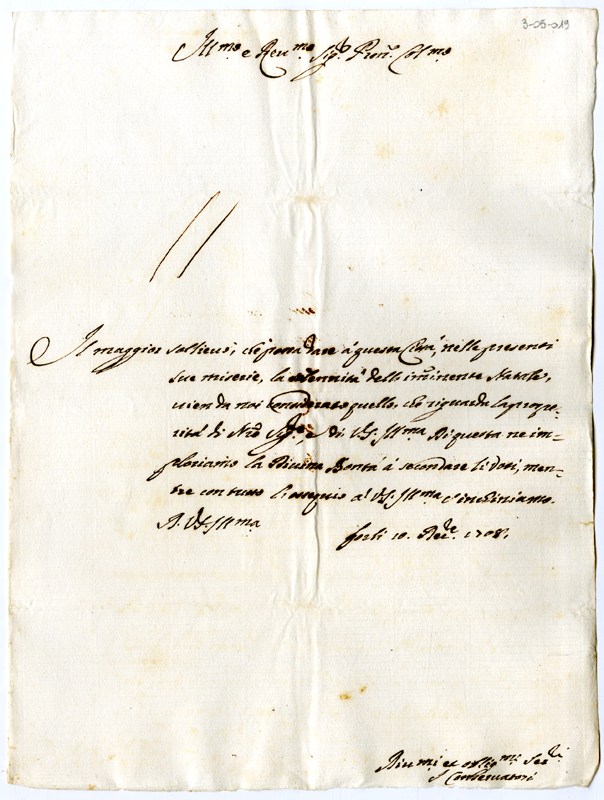 3-05-019
Ill.mo e Reu.mo Sig.r Pron. Col.mo
Il maggior sollieuo, che possa dare à questa Città, nelle presenti
sue miserie, la solennità dell'imminente Natale,
uien da noi considerato quello, che riguarda la prospe-
rità di Nro Sig.re, e di V.S. Ill.ma Di questa ne im-
ploriamo la Diuina Bontà à secondare li voti, men-
tre con tutto l'ossequio à V.S. Ill.ma c'inchiniamo.
D. V.S. Ill.ma
forlì 10. Xbre. 1708.
Diu.mi et obllig.mi Ser.ri
I Conseruatori